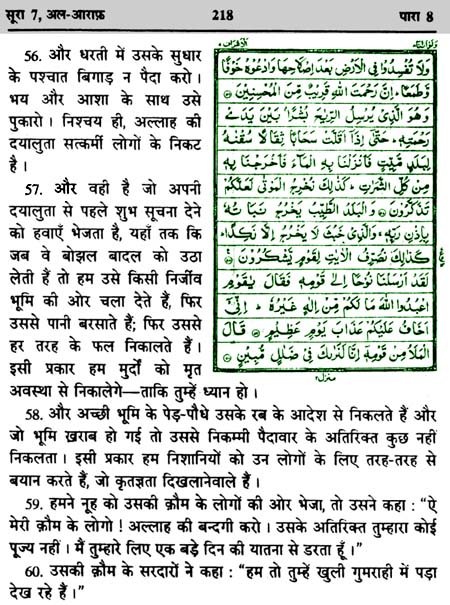 सूरा 7, अल-आराफ़ 218 पारा 8
56. और धरती में उसके सुधार
के पश्चात बिगाड़ न पैदा करो।
भय और आशा के साथ उसे
पुकारो। निश्चय ही, अल्लाह की
दयालुता सत्कर्मी लोगों के निकट
है।
57. और वही है जो अपनी
दयालुता से पहले शुभ सूचना देने
को हवाएँ भेजता है, यहाँ तक कि
जब वे बोझल बादल को उठा
लेती हैं तो हम उसे किसी निर्जीव
भूमि की ओर चला देते हैं, फिर
उससे पानी बरसाते हैं; फिर उससे
हर तरह के फल निकालते हैं।
इसी प्रकार हम मुर्दों को मृत
وَلَا تُفْسِدُوا فِي الْأَرْضِ بَعْدَ إِصْلَاحِهَا وَادْعُوهُ خَوْفًا
وَطَمَعًا إِنَّ رَحْمَتَ اللَّهِ قَرِيبٌ مِّنَ الْمُحْسِنِينَ
وَهُوَ الَّذِي يُرْسِلُ الرِّيٰحَ بُشْرًا بَيْنَ يَدَيْ
رَحْمَتِهِ حَتَّىٰ إِذَا أَقَلَّتْ سَحَابًا ثِقَالًا سُقْنٰهُ
لِبَلَدٍ مَّيِّتٍ فَأَنزَلْنَا بِهِ الْمَاءَ فَأَخْرَجْنَا بِهِ
مِن كُلِّ الثَّمَرٰتِ كَذٰلِكَ نُخْرِجُ الْمَوْتَىٰ لَعَلَّكُمْ
تَذَكَّرُونَ وَالْبَلَدُ الطَّيِّبُ يَخْرُجُ نَبَاتُهُ
بِإِذْنِ رَبِّهِ وَالَّذِي خَبُثَ لَا يَخْرُجُ إِلَّا نَكِدًا
كَذٰلِكَ نُصَرِّفُ الْآيٰتِ لِقَوْمٍ يَشْكُرُونَ
لَقَدْ أَرْسَلْنَا نُوحًا إِلَىٰ قَوْمِهِ فَقَالَ يٰقَوْمِ
اعْبُدُوا اللَّهَ مَا لَكُم مِّنْ إِلٰهٍ غَيْرُهُ إِنِّي
أَخَافُ عَلَيْكُمْ عَذَابَ يَوْمٍ عَظِيمٍ قَالَ
الْمَلَأُ مِن قَوْمِهِ إِنَّا لَنَرٰىكَ فِي ضَلٰلٍ مُّبِينٍ
अवस्था से निकालेंगे—ताकि तुम्हें ध्यान हो।
58. और अच्छी भूमि के पेड़-पौधे उसके रब के आदेश से निकलते हैं और
जो भूमि ख़राब हो गई तो उससे निकम्मी पैदावार के अतिरिक्त कुछ नहीं
निकलता। इसी प्रकार हम निशानियों को उन लोगों के लिए तरह-तरह से
बयान करते हैं, जो कृतज्ञता दिखलानेवाले हैं।
59. हमने नूह को उसकी क़ौम के लोगों की ओर भेजा, तो उसने कहा : “ऐ
मेरी क़ौम के लोगो! अल्लाह की बन्दगी करो। उसके अतिरिक्त तुम्हारा कोई
पूज्य नहीं। मैं तुम्हारे लिए एक बड़े दिन की यातना से डरता हूँ।”
60. उसकी क़ौम के सरदारों ने कहा : “हम तो तुम्हें खुली गुमराही में पड़ा
देख रहे हैं।”